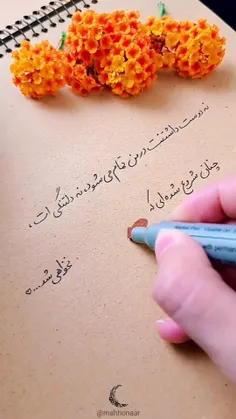 نه دوست داشتنت در من تمام می‌شود، نه دلتنگی ات،
چنان شروع شده‌ای که
نخواهی شد...
@mahhonaar